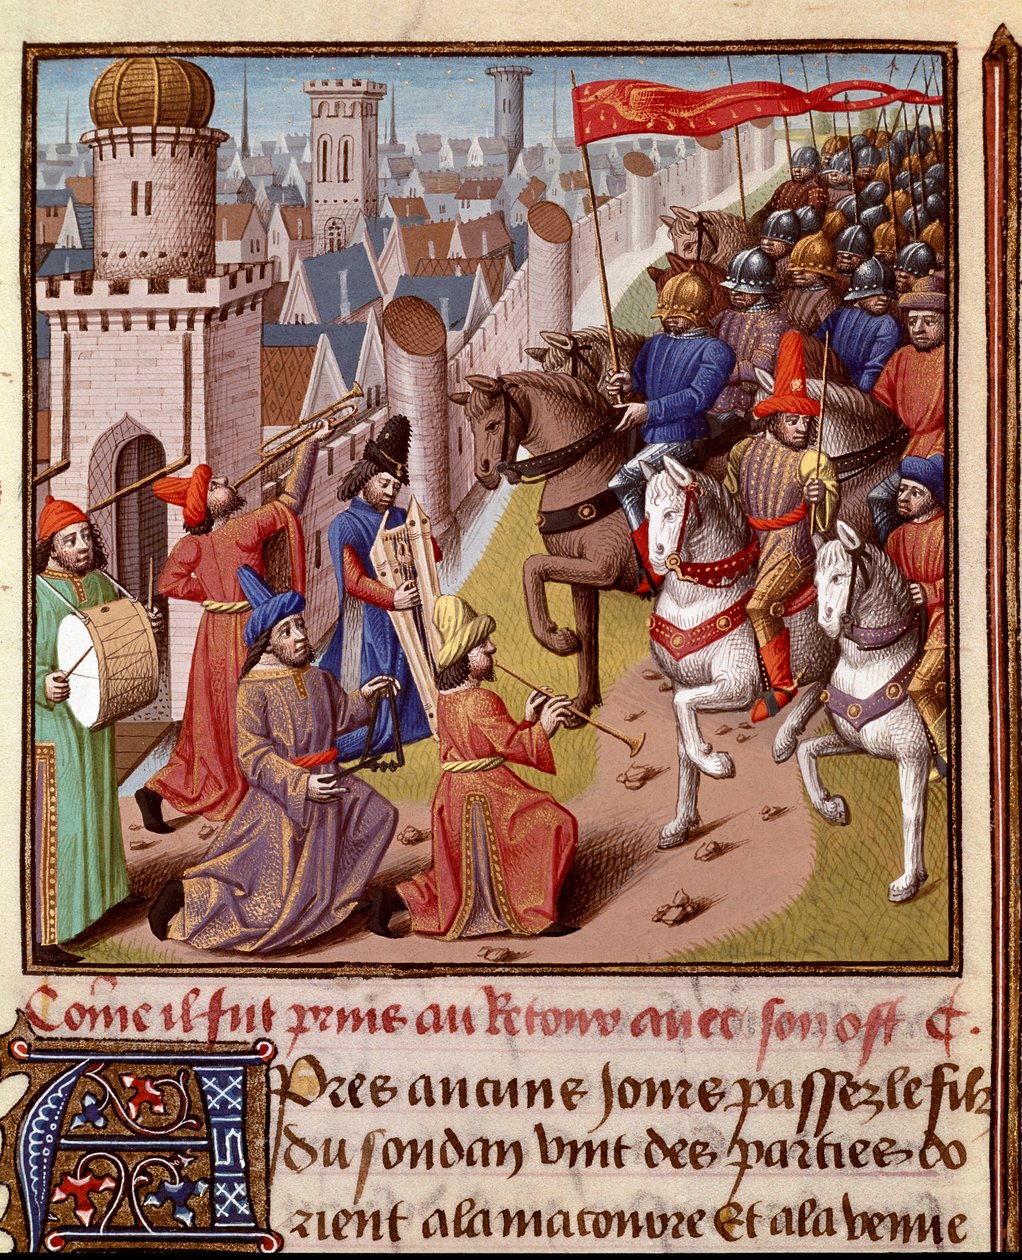 Com̃e il fut prins au Retour auec son ost. C.
APres aucuns Jours passez le filz
du soudan vint des parties do
rient a la matoure Et a la venue